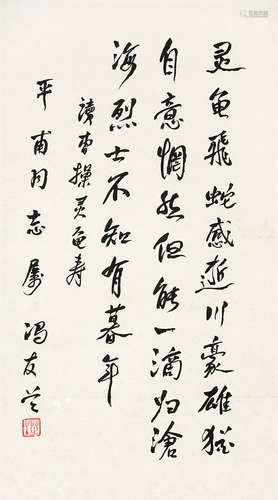 灵龟飛蛇感逝川豪雄猶
自意惘然但能一滴归滄
海烈士不知有暮年
读曹操灵龟寿
平甫同志属 冯友兰